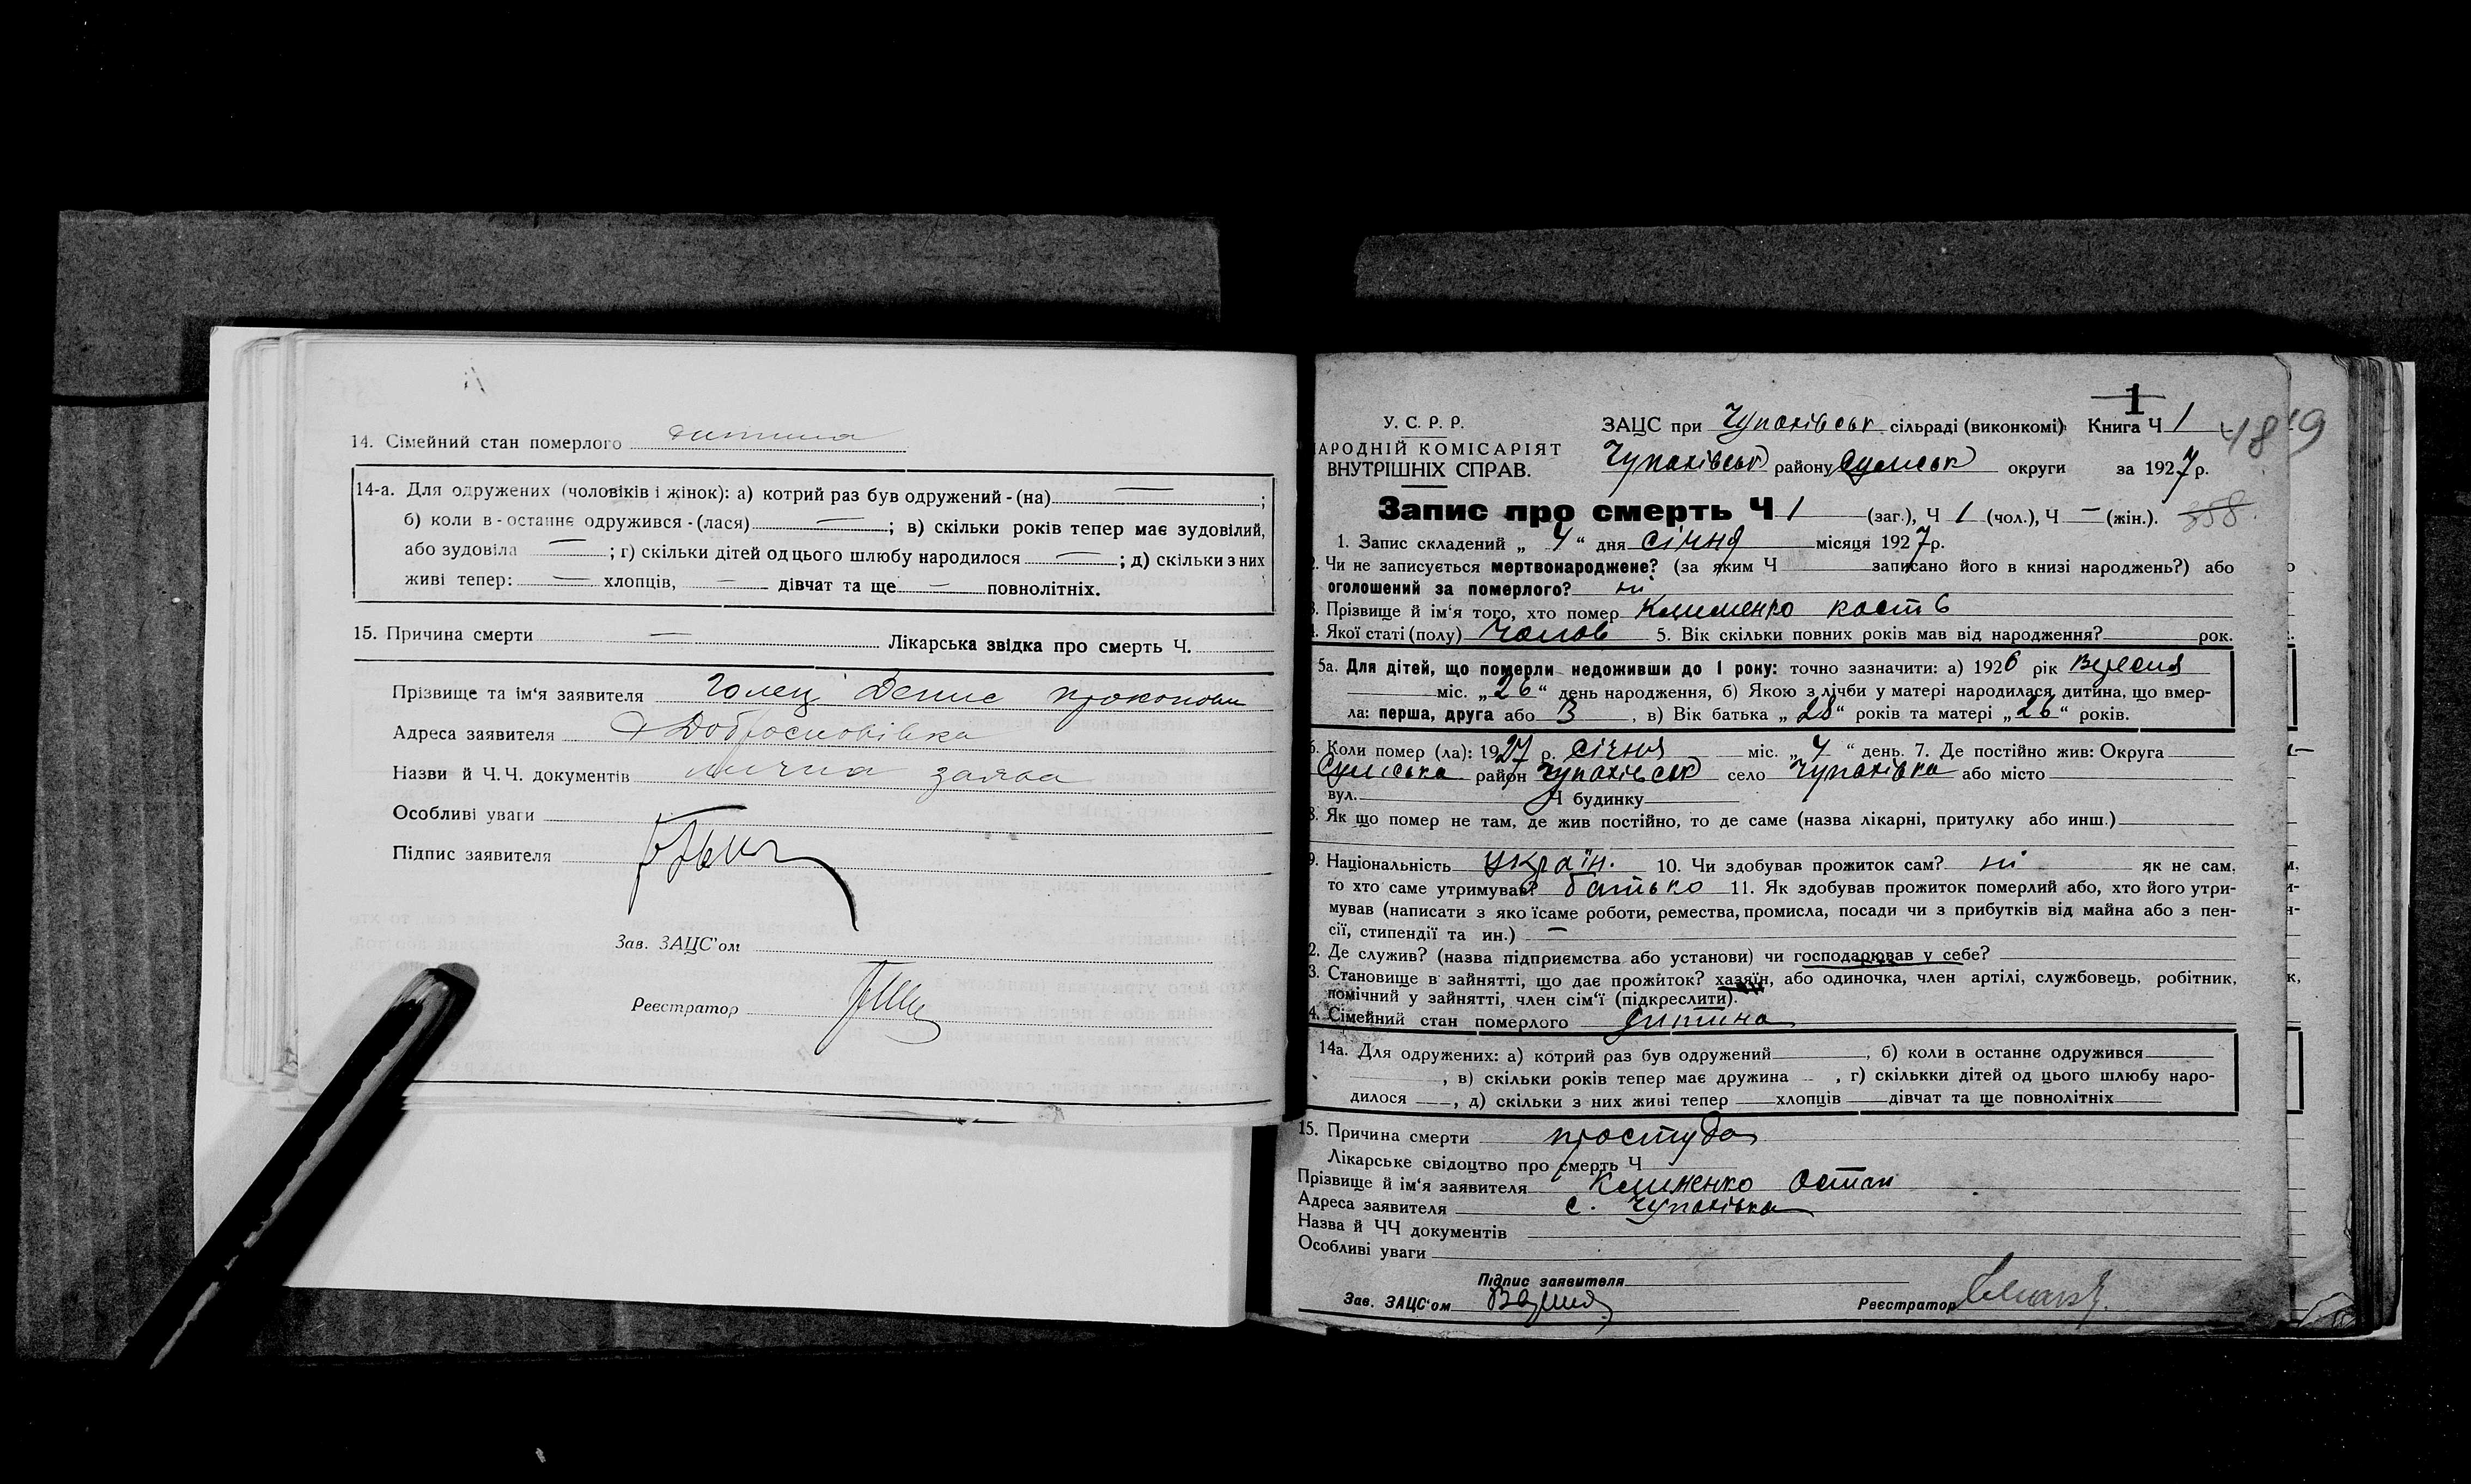 14. Сімейний стан померлого дитина
14-а. Для одружених (чоловіків і жінок): а) котрий раз був одружений - (на) — ;
б) коли в - останнє одружився - (лася) — ; в) скільки років тепер має зудовілий,
або зудовіла — ; г) скільки дітей од цього шлюбу народилося — ; д) скільки з них
живі тепер: — хлопців, — дівчат та ще — повнолітніх.
15. Причина смерти — Лікарська звідка про смерть Ч.
Прізвище та ім'я заявителя Голец Денис
Адреса заявителя
Назви й Ч.Ч. документів лична заява
Особливі уваги
Підпис заявителя
Зав. ЗАЦС'ом
Реєстратор
1
У. С. Р. Р. ЗАЦС при Чупахівськ сільраді (виконкомі) Книга Ч 1
НАРОДНІЙ КОМІСАРІЯТ
ВНУТРІШНІХ СПРАВ. Чупахівськ району Сумськ округи за 1927 р.
Запис про смерть Ч 1 (заг.), Ч 1 (чол.), Ч — (жін.). 358
1. Запис складений „ 4 “ дня січня місяця 1927 р.
2. Чи не записується мертвонароджене? (за яким Ч записано його в книзі народжень?) або
оголошений за померлого? ні
3. Прізвище й ім'я того, хто помер Клименко
4. Якої статі (полу) чолов 5. Вік скільки повних років мав від народження? рок.
5а. Для дітей, що померли недоживши до 1 року: точно зазначити: а) 1926 рік вересня
міс. „26“ день народження, б) Якою з лічби у матері народилася дитина, що вмер-
ла: перша, друга або 3 , в) Вік батька „28“ років та матері „26“ років.
6. Коли помер (ла): 1927 р. січня міс. „ 4 “ день. 7. Де постійно жив: Округа
Сумська район Чупахівськ село Чупахівка або місто
вул. Ч будинку
8. Як що помер не там, де жив постійно, то де саме (назва лікарні, притулку або инш.)
9. Національність україн. 10. Чи здобував прожиток сам? ні як не сам,
то хто саме утримував? батько 11. Як здобував прожиток померлий або, хто його утри-
мував (написати з яко їсаме роботи, ремества, промисла, посади чи з прибутків від майна або з пен-
сії, стипендії та ин.) —
12. Де служив? (назва підприємства або установи) чи господарював у себе?
13. Становище в зайнятті, що дає прожиток? хазяїн, або одиночка, член артілі, службовець, робітник,
помічний у зайнятті, член сім'ї (підкреслити).
14. Сімейний стан померлого дитина
14а. Для одружених: а) котрий раз був одружений , б) коли в останнє одружився
, в) скільки років тепер має дружина , г) скількки дітей од цього шлюбу наро-
дилося , д) скільки з них живі тепер хлопців дівчат та ще повнолітніх
15. Причина смерти простуда
Лікарське свідоцтво про смерть Ч
Прізвище й ім'я заявителя Клименко Остап
Адреса заявителя с. Чупахівка
Назва й ЧЧ документів
Особливі уваги
Підпис заявителя
Зав. ЗАЦС'ом Реєстратор